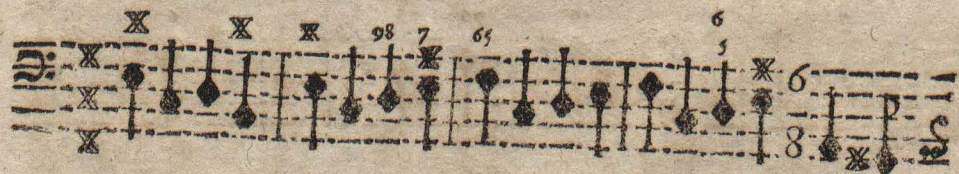 98 7 65 6
5
6
8